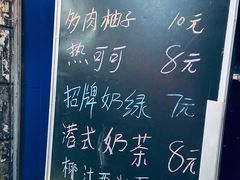 多肉柚子 10元
热可可 8元
招牌奶绿 7元
港式奶茶 8元
椰汁西米